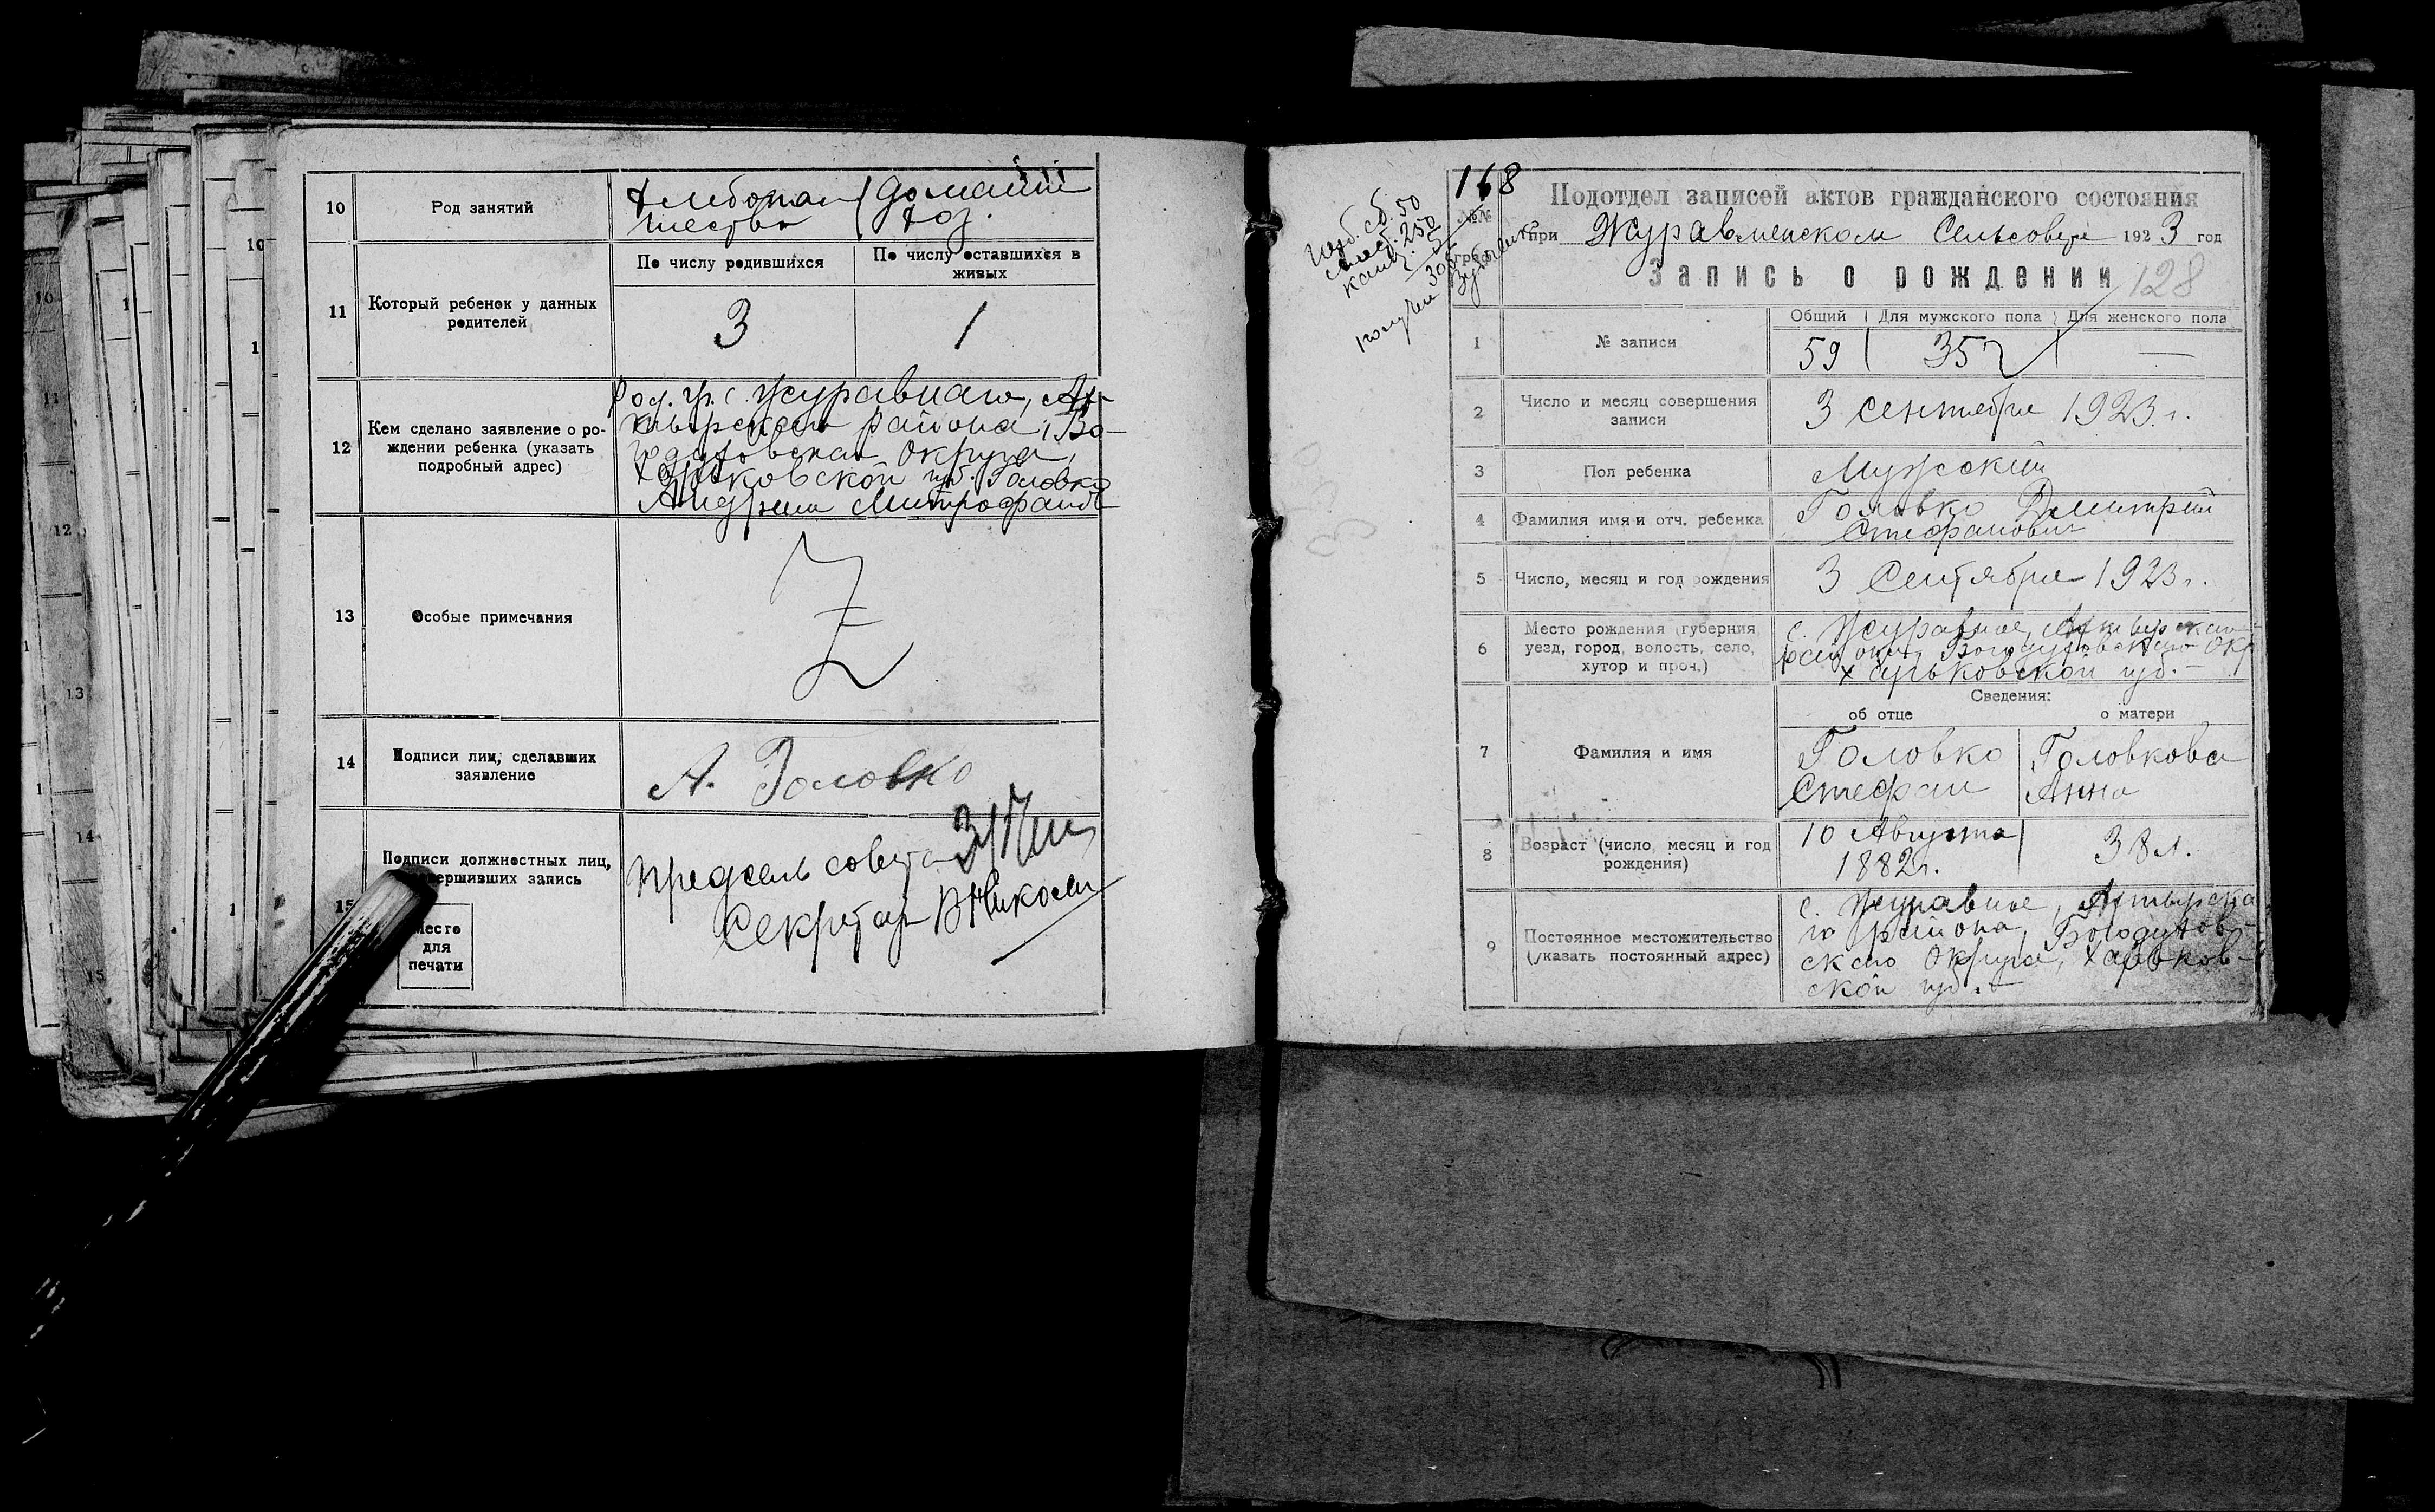 10 Род занятий Хлебопа- домашн.
шество хоз.
11 Который ребенок у данных родителей
По числу родившихся По числу оставшихся в живых
3 1
12 Кем сделано заявление о ро-
ждении ребенка (указать
подробный адрес)
Род. гр. с. Журавнаго, Ах-
тырского района, Бо-
годуховская Округа,
Харьковской губ. Головко
Андреем Митрофанов
13 Особые примечания
Z
14 Подписи лиц, сделавших
заявление
А. Головко
15 Подписи должностных лиц,
вершивших запись
Предсельсовета
Секретарь
Место
для
печати
168
№№
50
250
5
305
Подотдел записей актов гражданского состояния
при Журавленском Сельсовете 1923 год
Запись о рождении 128
Общий Для мужского пола Для женского пола
1 № записи 59 35 —
2 Число и месяц совершения
записи
3 Сентября 1923 г.
3 Пол ребенка Мужский
4 Фамилия имя и отч. ребенка Головко Дмитрий
Стефанович
5 Число, месяц и год рождения 3 Сентября 1923 г.
6 Место рождения (губерния
уезд, город, волость, село,
хутор и проч.)
с. Журавное, Ахтырскаго
района, Богодуховскаго Окр
Харьковской губ. —
Сведения:
об отце о матери
7 Фамилия и имя Головко Головкова
Стефан Анна
8 Возраст (число, месяц и год
рождения)
10 Августа 38 л.
1882 г.
9 Постоянное местожительство
(указать постоянный адрес)
с. Журавное, Ахтырска
го района, Богодухов-
скаго Округа, Харьков-
ской губ. —